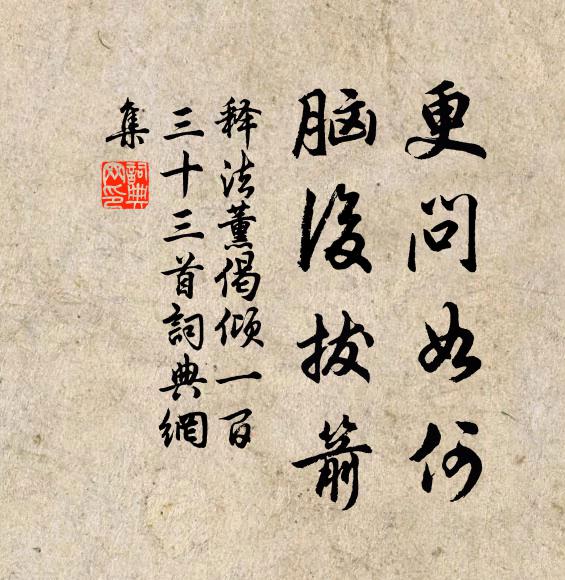 更问如何
脑後拔箭
释法薰偈倾一百
三十三首詞典網
集
詞典
网印